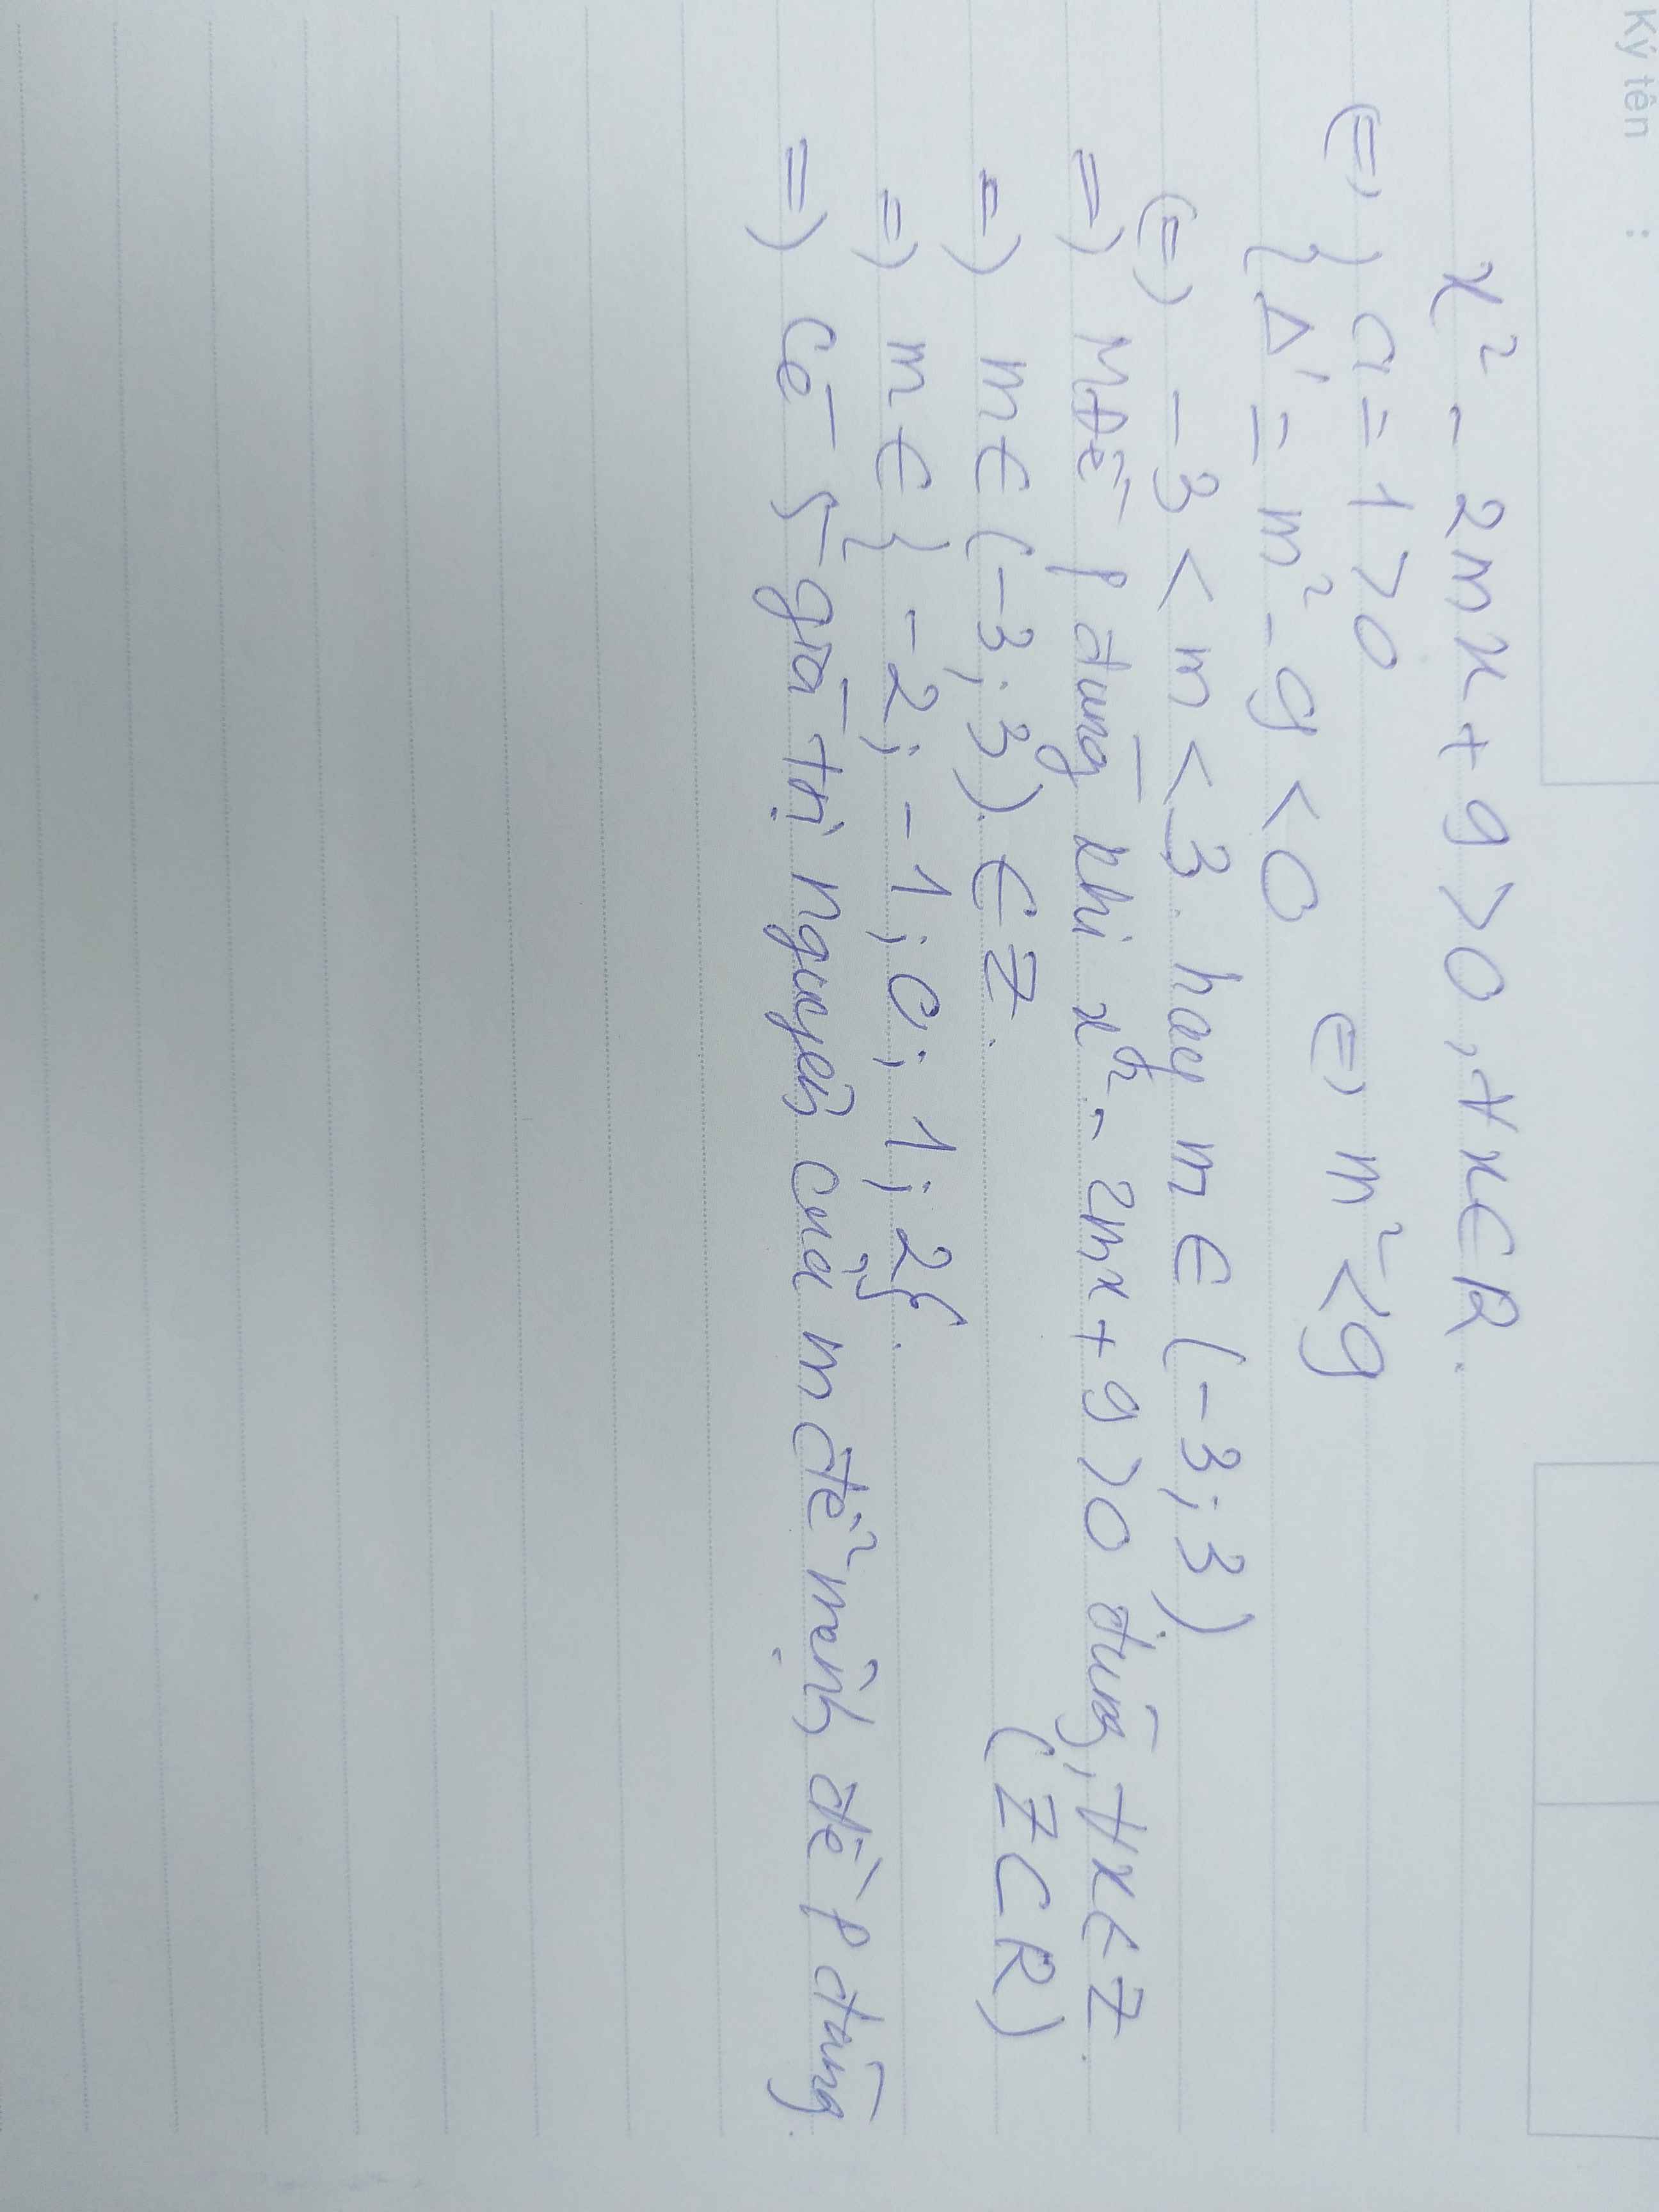 Ký tên :
x² - 2mx + 9 > 0, ∀x∈R.
⇔ { a = 1 > 0
{ Δ' = m² - 9 < 0 ⇔ m² < 9
⇔ -3 < m < 3. hay m ∈ (-3; 3)
=) MĐề P đúng khi x² - 2mx + 9 > 0 đúng, ∀x∈Z.
=) m ∈ (-3; 3) ∈ Z. (Z⊂R)
=) m ∈ { -2; -1; 0; 1; 2}.
=) Có 5 giá trị nguyên của m để mệnh đề P đúng.